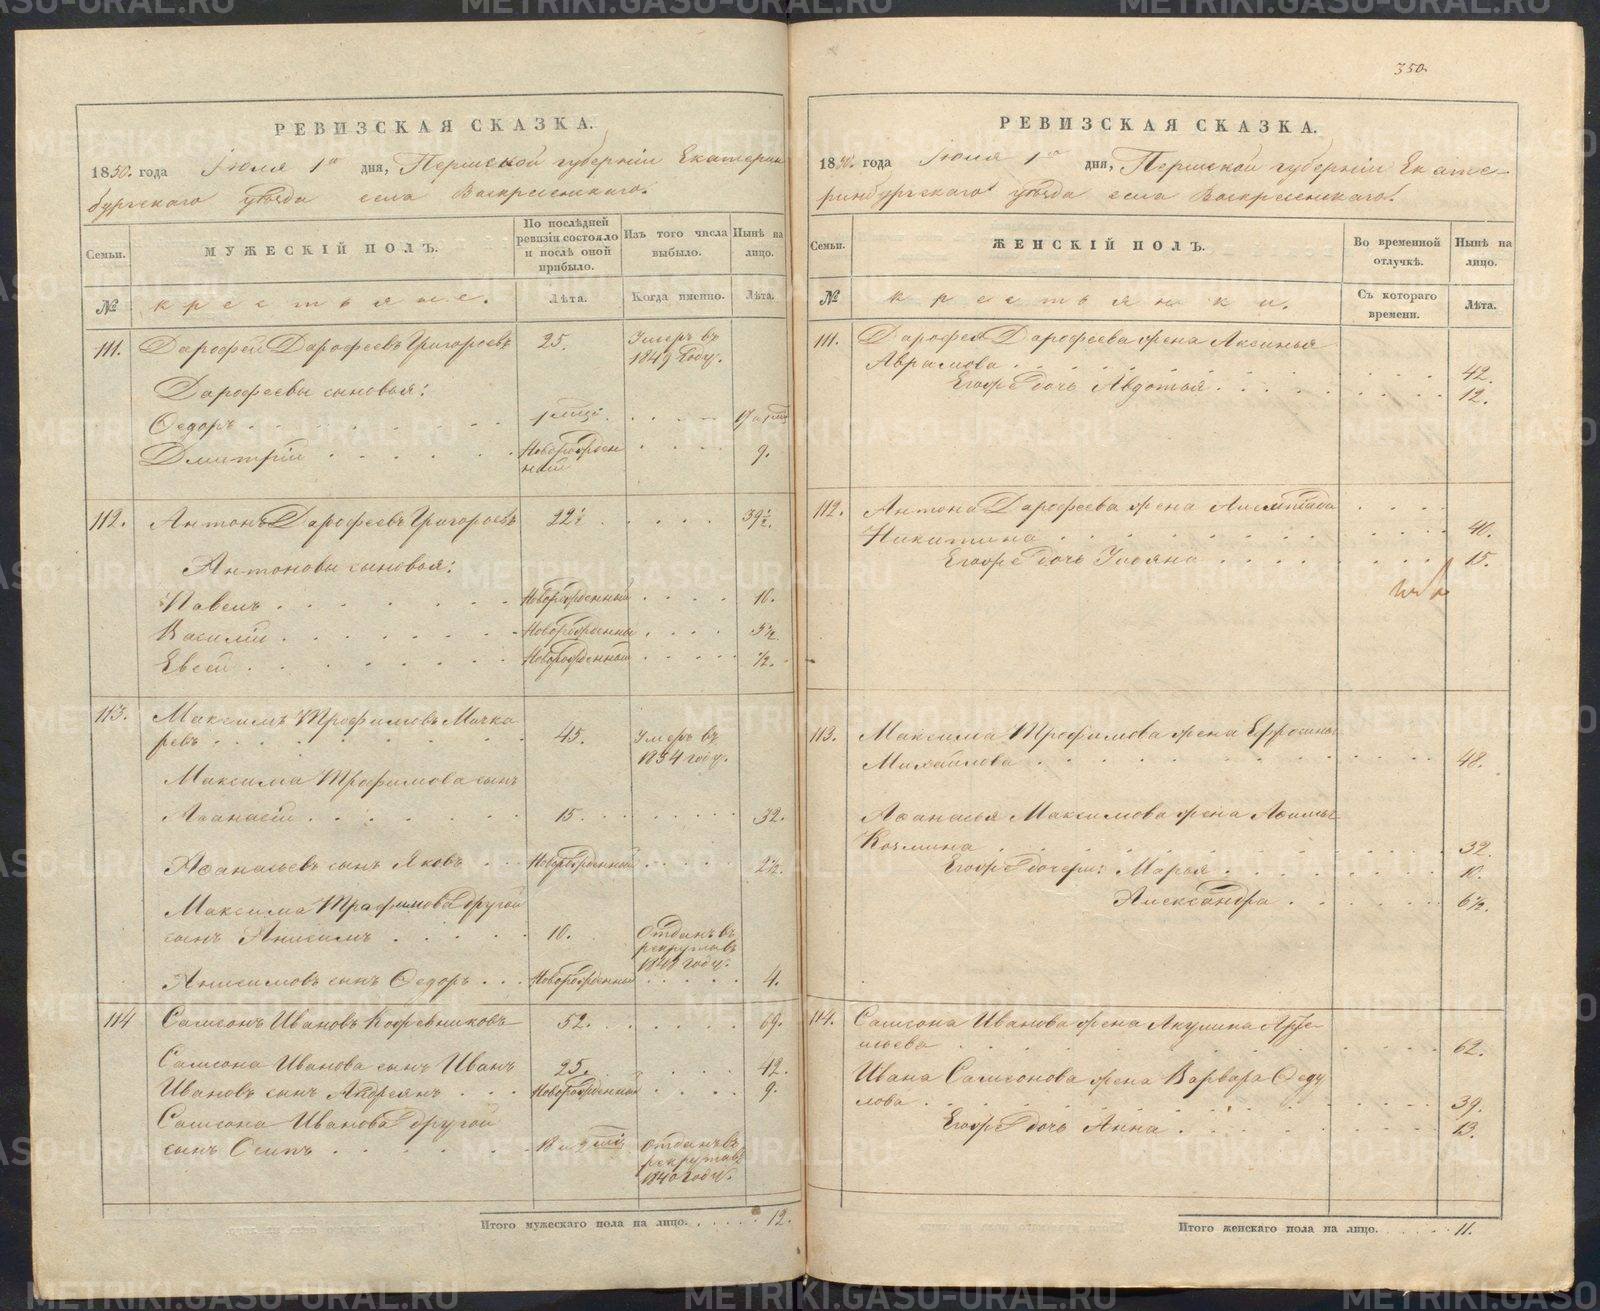 350.
РЕВИЗСКАЯ СКАЗКА.
1850. года Июля 1го дня, Пермской губернiи Екатерин
бургскаго уѣзда села Воскресенскаго.
Семьи.
МУЖЕСКIЙ ПОЛЪ.
По послѣдней ревизiи состояло и послѣ оной прибыло.
Изъ того числа выбыло.
Нынѣ на лицо.
№
крестьяне.
Лѣта.
Когда именно.
Лѣта.
111. Дарофей Дарофеевъ Григорьевъ 25. Умеръ въ
1849 году.
Дарофеевы сыновья:
Федоръ 1 мцъ 17 и 1 мцъ
Дмитрiй Новорожден
ный 9.
112. Антонъ Дарофеевъ Григорьевъ 22½ 39½.
Антоновы сыновья:
Павелъ Новорожденный 10.
Василiй Новорожденный 3½
Евсей Новорожденный ½.
113. Максимъ Трофимовъ Мачка
ревъ 45. Умеръ въ
1834 году.
Максима Трофимова сынъ
Афанасiй 15. 32.
Афанасьевъ сынъ Яковъ Новорожденный 2½.
Максима Трафимова другой
сынъ Анисимъ 10. Отданъ въ
рекруты въ
1848 году.
Анисимовъ сынъ Федоръ Новорожденный 4.
114 Самсонъ Ивановъ Кожевниковъ 52. 69.
Самсона Иванова сынъ Иванъ 25. 42.
Ивановъ сынъ Андреянъ Новорожденный 9.
Самсона Иванова другой
сынъ Осипъ 18 и 9 мцъ Отданъ въ
рекруты въ
1840 году.
Итого мужескаго пола на лицо. 12.
РЕВИЗСКАЯ СКАЗКА.
1850. года Июля 1го дня, Пермской губернiи Екате-
ринбургскаго уѣзда села Воскресенскаго.
Семьи.
ЖЕНСКIЙ ПОЛЪ.
Во временной отлучкѣ.
Нынѣ на лицо.
№
крестьянки.
Съ котораго времени.
Лѣта.
111. Дарофея Дарофеева жена Аксинья
Аврамова 42.
Егоже дочь Авдотья 12.
112. Антона Дарофеева жена
Никитина 40.
Егоже дочь Ульяна 15.
113. Максима Трофимова жена Ефросинья
Михайлова 48.
Афанасья Максимова жена
Козмина 32.
Егоже дочери: Марья 10.
Александра 6½.
114. Самсона Иванова жена Акулина
62.
Ивана Самсонова жена Варвара Феду
лова 39.
Егоже дочь Анна 13.
Итого женскаго пола на лицо. 11.
METRIKI.GASO-URAL.RU